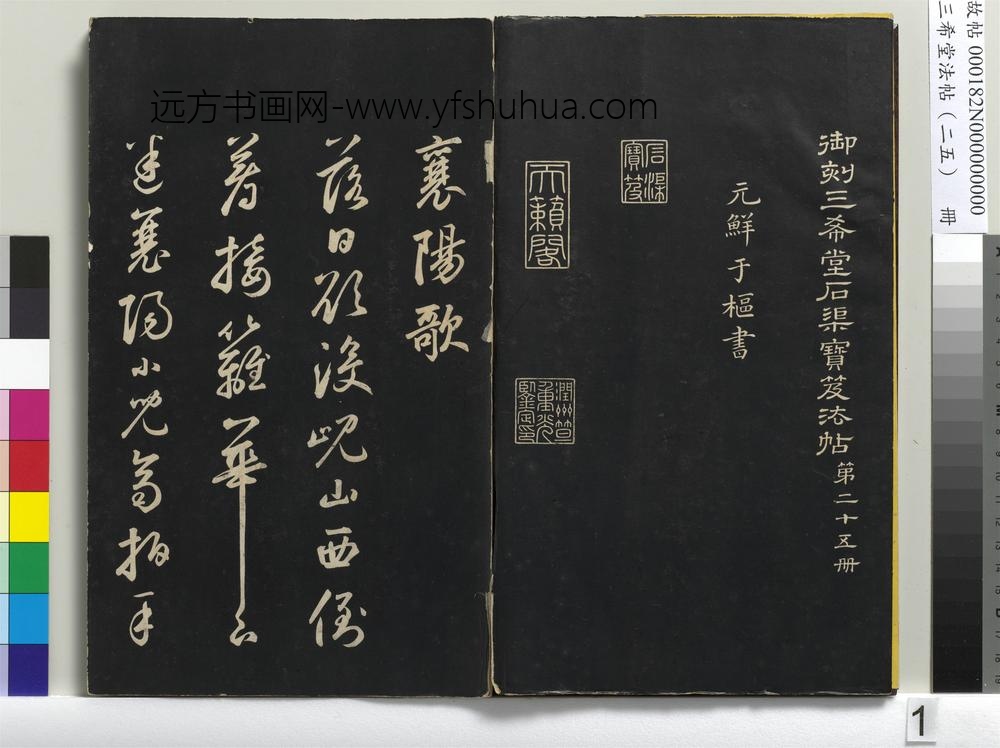 远方书画网-www.yfshuhua.com
故帖 000182N000000000
三希堂法帖（二五） 冊
御刻三希堂石渠寶笈法帖 第二十五册
元鮮于樞書
石渠寶笈
天籟閣
襄陽歌
落日欲没峴山西倒
著接䍦華下
迷襄陽小兒齊拍手
1